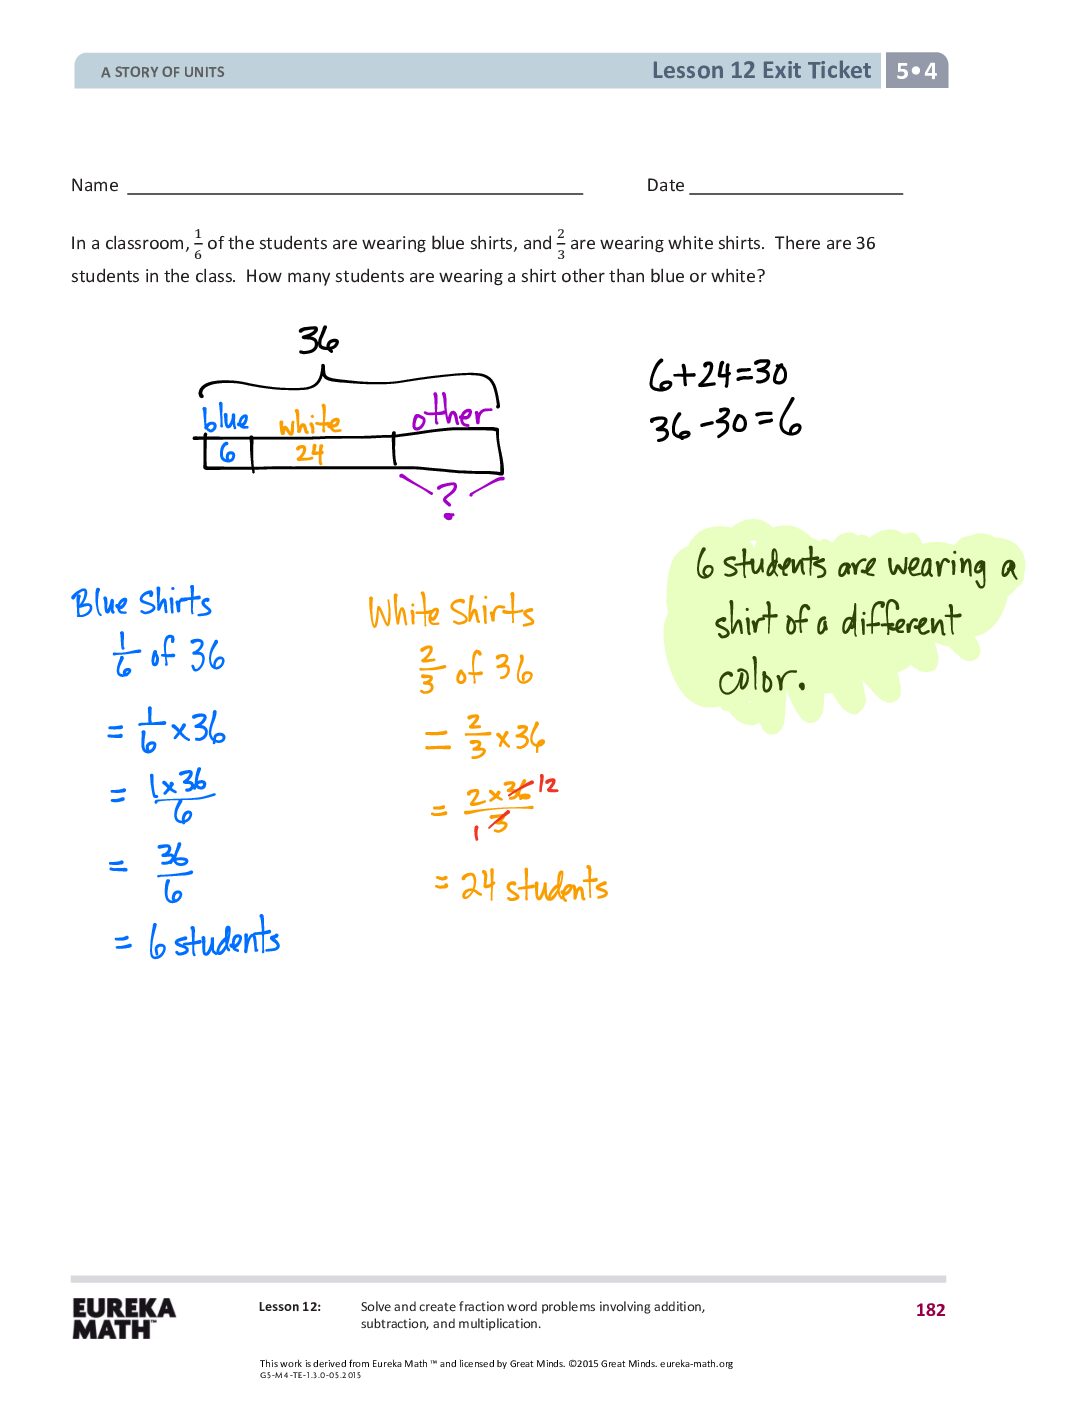 A STORY OF UNITS
Lesson 12 Exit Ticket 5•4
Name
Date
In a classroom, 1/6 of the students are wearing blue shirts, and 2/3 are wearing white shirts. There are 36
students in the class. How many students are wearing a shirt other than blue or white?
36
blue white other
6 24
?
6+24=30
36-30=6
6 students are wearing a
shirt of a different
color.
Blue Shirts
1/6 of 36
= 1/6 x 36
= 1 x 36/6
= 36/6
= 6 students
White Shirts
2/3 of 36
= 2/3 x 36
= 2 x 36/3 12 1
= 24 students
EUREKA
MATH™
Lesson 12: Solve and create fraction word problems involving addition,
subtraction, and multiplication.
182
This work is derived from Eureka Math ™ and licensed by Great Minds. ©2015 Great Minds. eureka-math.org
G5-M4-TE-1.3.0-05.2015